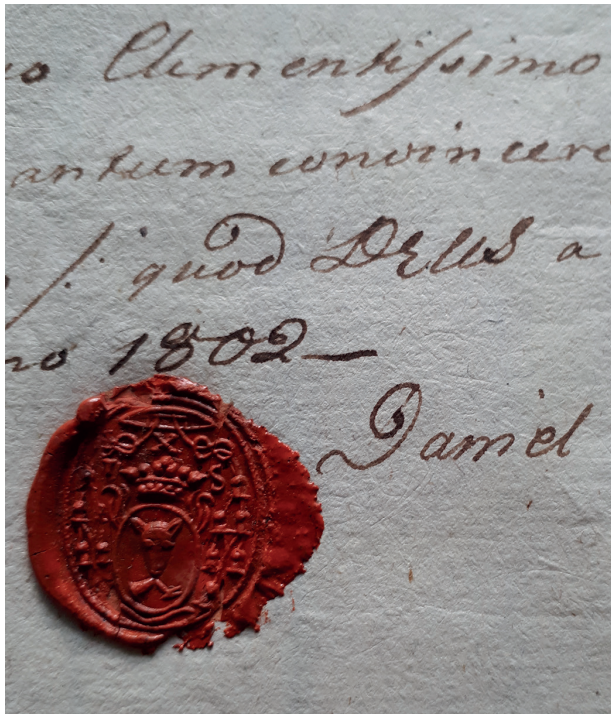 o Clementissimo
antum convincere
/: quod DEUS a
no 1802 —
Daniel